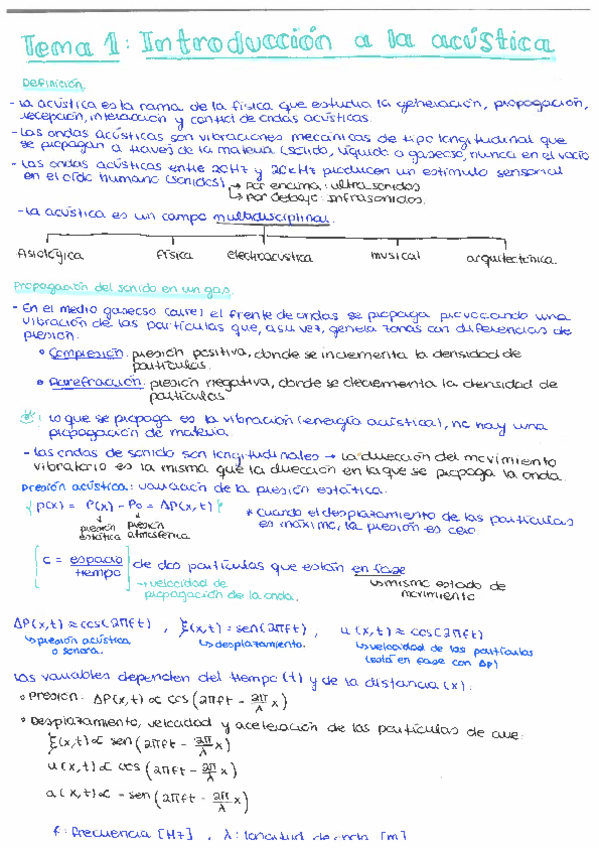 Tema 1: Introducción a la acústica
Definición
- La acústica es la rama de la física que estudia la generación, propagación,
recepción, interacción y control de ondas acústicas.
- Las ondas acústicas son vibraciones mecánicas de tipo longitudinal que
se propagan a través de la materia (sólido, líquido o gaseoso, nunca en el vacío
- Las ondas acústicas entre 20Hz y 20kHz producen un estímulo sensorial
en el oído humano (sonidos) → por encima: ultrasonidos
→ por debajo: infrasonidos.
- La acústica es un campo multidisciplinal.
fisiológica física electroacustica musical arquitectónica.
Propagación del sonido en un gas.
- En el medio gaseoso (aire) el frente de ondas se propaga provocando una
vibración de las partículas que, a su vez, genera zonas con diferencias de
presión.
• Compresión: presión positiva, donde se incrementa la densidad de
partículas.
• Rarefracción: presión negativa, donde se decrementa la densidad de
partículas.
: Lo que se propaga es la vibración (energía acústica), no hay una
propagación de materia.
- Las ondas de sonido son longitudinales → La dirección del movimiento
vibratorio es la misma que la dirección en la que se propaga la onda.
Presión acústica: variación de la presión estática.
p(x) = P(x) - Po = ΔP(x,t)
presión estática
presión atmosférica
* Cuando el desplazamiento de las partículas
es máximo, la presión es cero
c = espacio / tiempo de dos partículas que están en fase
→ velocidad de propagación de la onda.
↳ mismo estado de movimiento
ΔP(x,t) ≈ cos(2πft) , ξ(x,t) = sen(2πft) , u(x,t) ≈ cos(2πft)
↳ presión acústica o sonora.
↳ desplazamiento.
↳ velocidad de las partículas (está en fase con Δp)
Las variables dependen del tiempo (t) y de la distancia (x):
• Presión: ΔP(x,t) ∝ cos (2πft - 2π/λ x)
• Desplazamiento, velocidad y aceleración de las partículas de aire:
ξ(x,t) ∝ sen (2πft - 2π/λ x)
u(x,t) ∝ cos (2πft - 2π/λ x)
a(x,t) ∝ - sen (2πft - 2π/λ x)
f: frecuencia [Hz] , λ: longitud de onda [m]